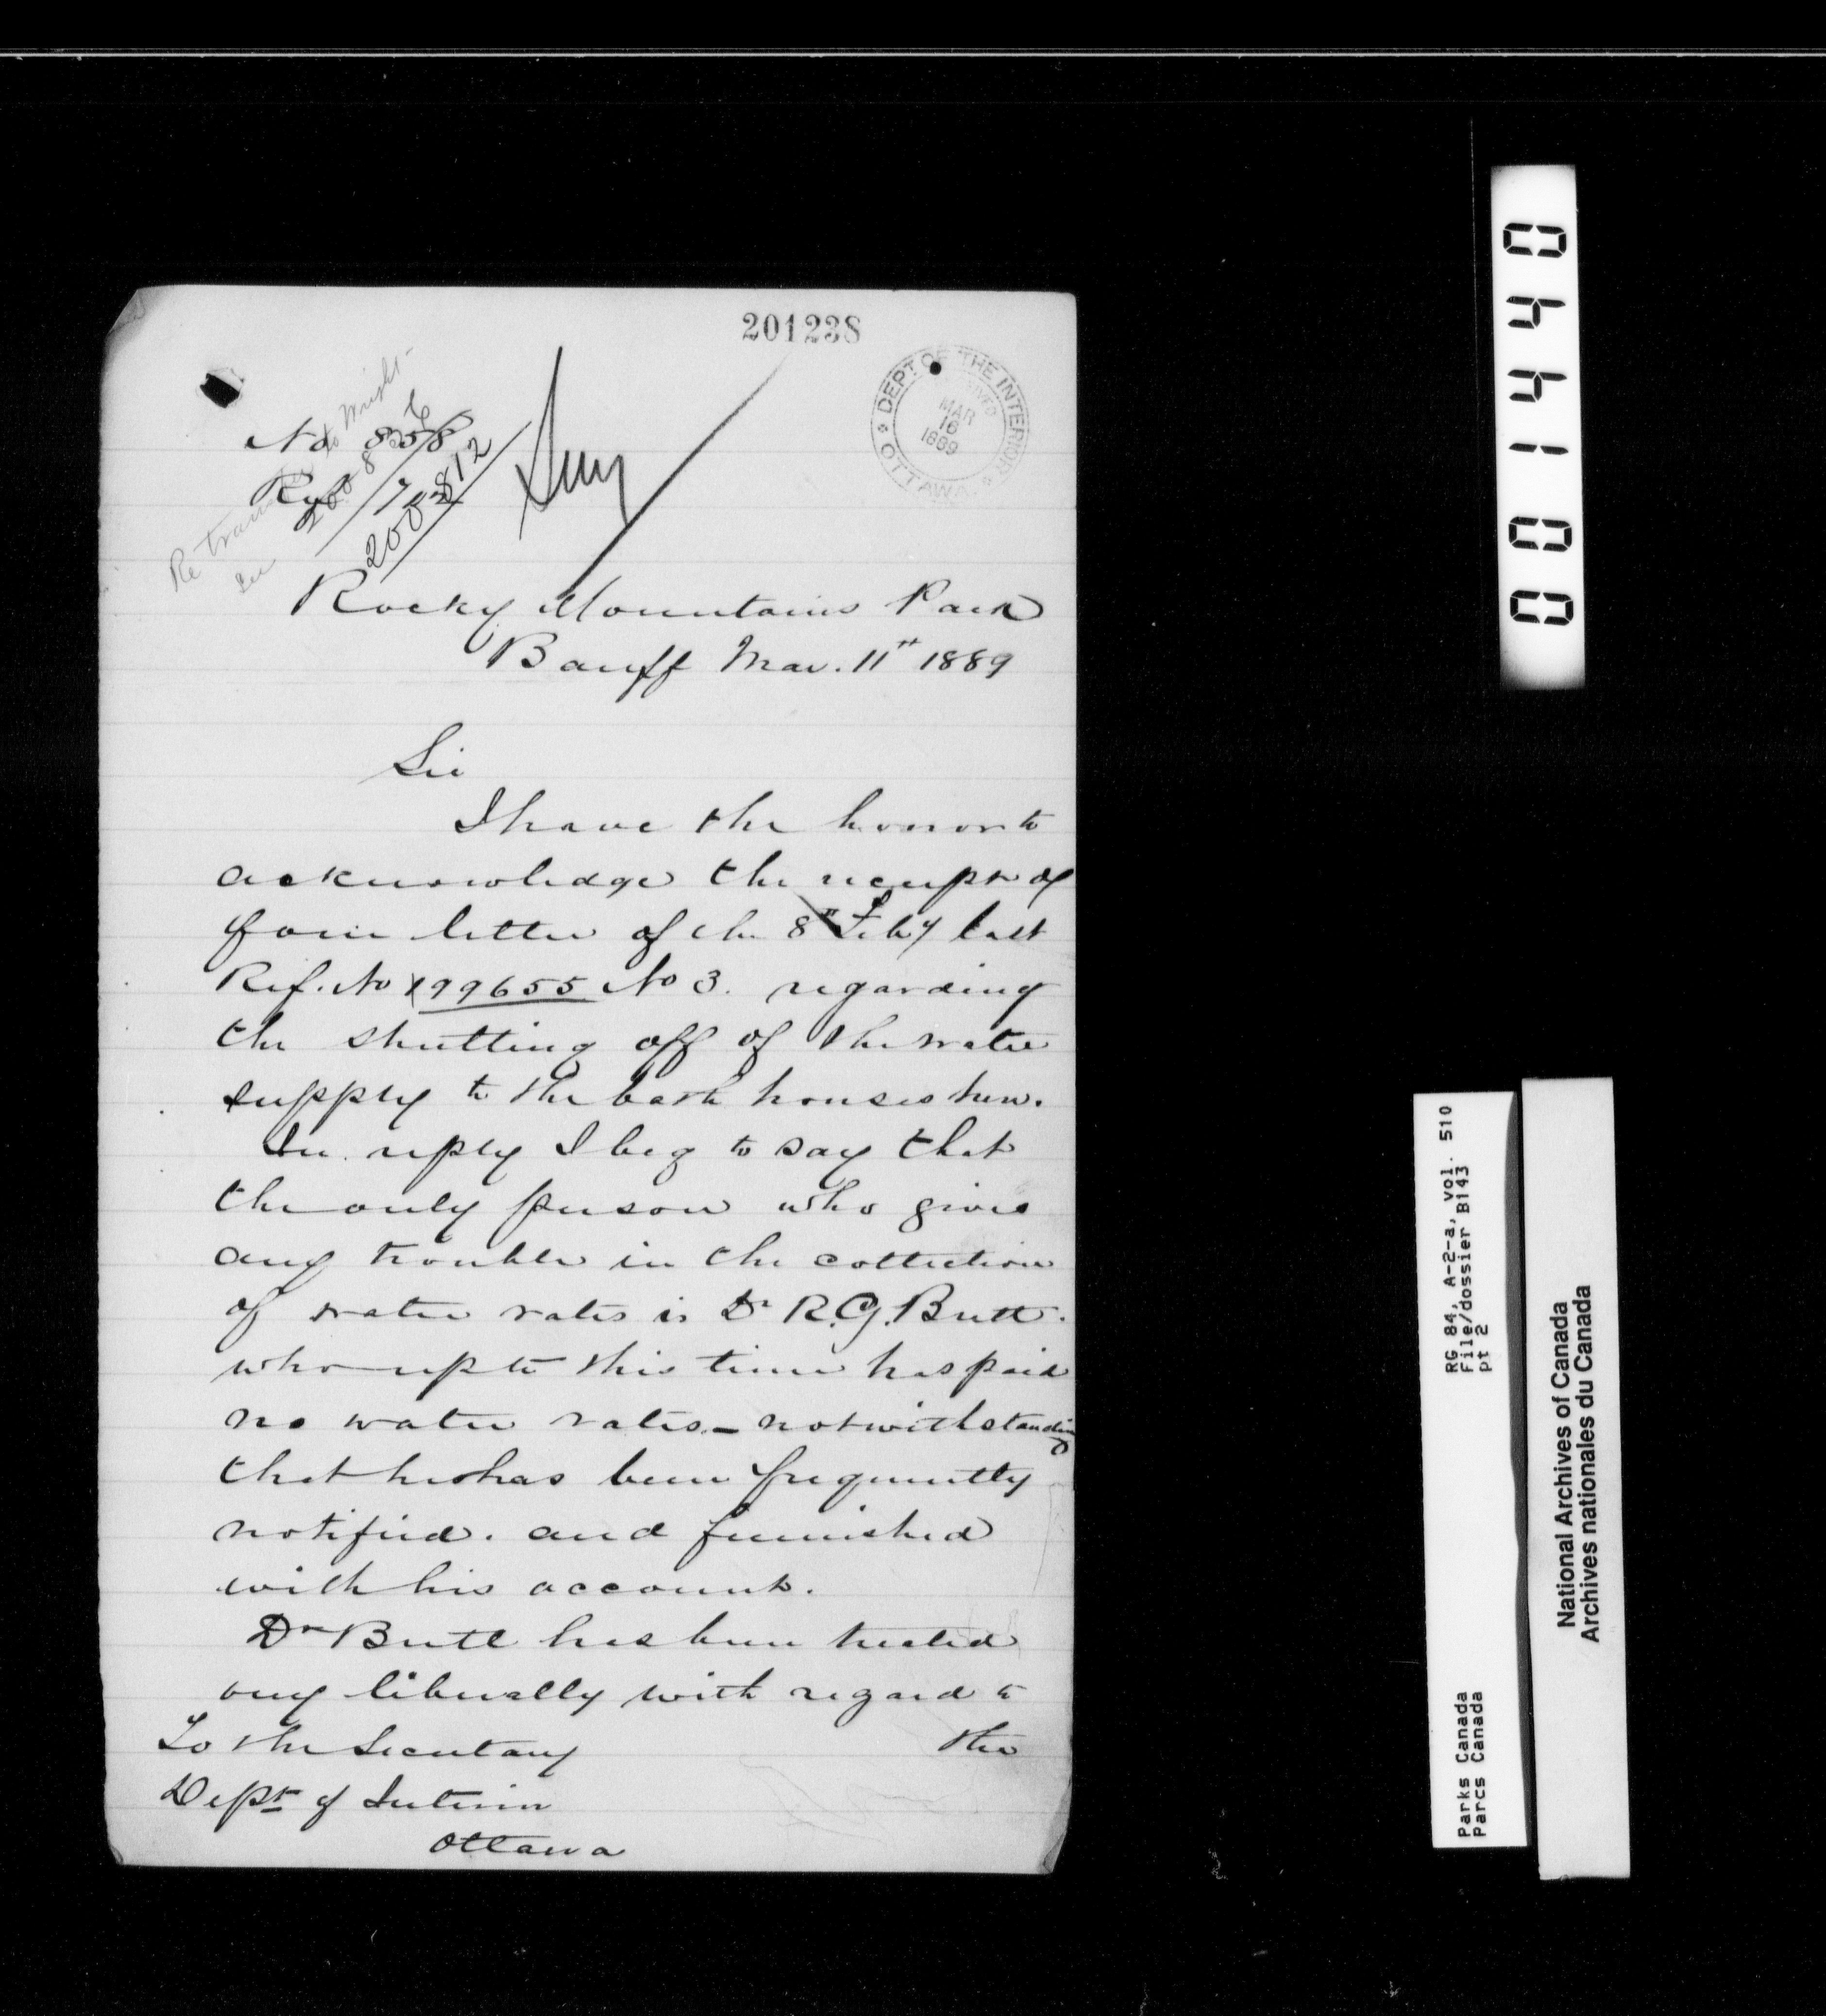 201238
DEPT OF THE INTERIOR
RECEIVED
MAR
16
1889
OTTAWA
Re trans to Wright
See 20085
No 8356/8
Ry
200812
Rocky Mountains Park
Banff Mar. 11th 1889
Sir
I have the honor to
acknowledge the receipt of
your letter of the 8th Feby last
Ref. No 199655 No 3. regarding
the shutting off of the water
supply to the bath houses here.
In reply I beg to say that
the only person who gives
any trouble in the collection
of water rates is Dr R.G. Brett.
who up to this time has paid
no water rates – notwithstanding
that he has been frequently
notified. and furnished
with his account.
Dr Brett has been treated
very liberally with regard to
the
To the Secretary
Dept of Interior
Ottawa
0 4 4 1 0 0
RG 84, A-2-a, vol. 510
File/dossier B143
pt 2
Parks Canada
Parcs Canada
National Archives of Canada
Archives nationales du Canada